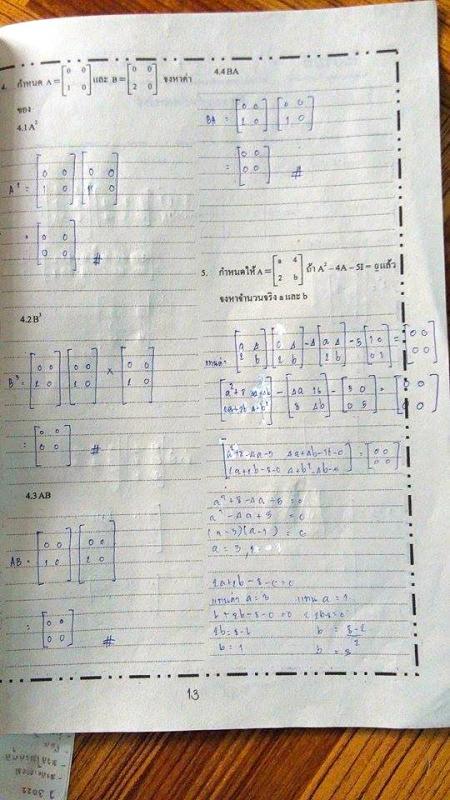 4. กำหนด A = [0 0; 1 0] และ B = [0 0; 2 0] จงหาค่า
ของ
4.1 A²
A² = [0 0; 1 0] [0 0; 1 0]
= [0 0; 0 0] #
4.2 B³
B³ = [0 0; 2 0] [0 0; 2 0] × [0 0; 2 0]
= [0 0; 0 0] #
4.3 AB
AB = [0 0; 1 0] [0 0; 2 0]
= [0 0; 0 0] #
4.4 BA
BA = [0 0; 2 0] [0 0; 1 0]
= [0 0; 0 0] #
5. กำหนดให้ A = [a 4; 2 b] ถ้า A² – 4A – 5I = 0 แล้ว
จงหาจำนวนจริง a และ b
แทนค่า [a 4; 2 b] [a 4; 2 b] - 4 [a 4; 2 b] - 5 [1 0; 0 1] = [0 0; 0 0]
- [4a 16; 8 4b] - [5 0; 0 5] = [0 0; 0 0]
= [0 0; 0 0]
a² + 8 - 4a - 5 = 0
a² - 4a + 3 = 0
(a-3)(a-1) = 0
a = 3, 1
2a + 2b - 8 - 0 = 0
แทนค่า a = 3 แทน a = 1
6 + 2b - 8 - 0 = 0
2b = 8 - 6
b = 1
b = 3
13